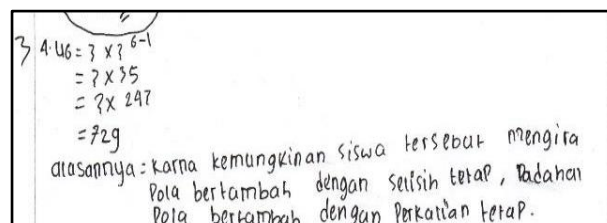 3 4. U6 = 3 x 3 6-1
= 3 x 35
= 3 x 247
= 729
alasannya : karna kemungkinan siswa tersebut mengira
Pola bertambah dengan selisih tetap, Padahal
Pola bertambah dengan Perkalian tetap.